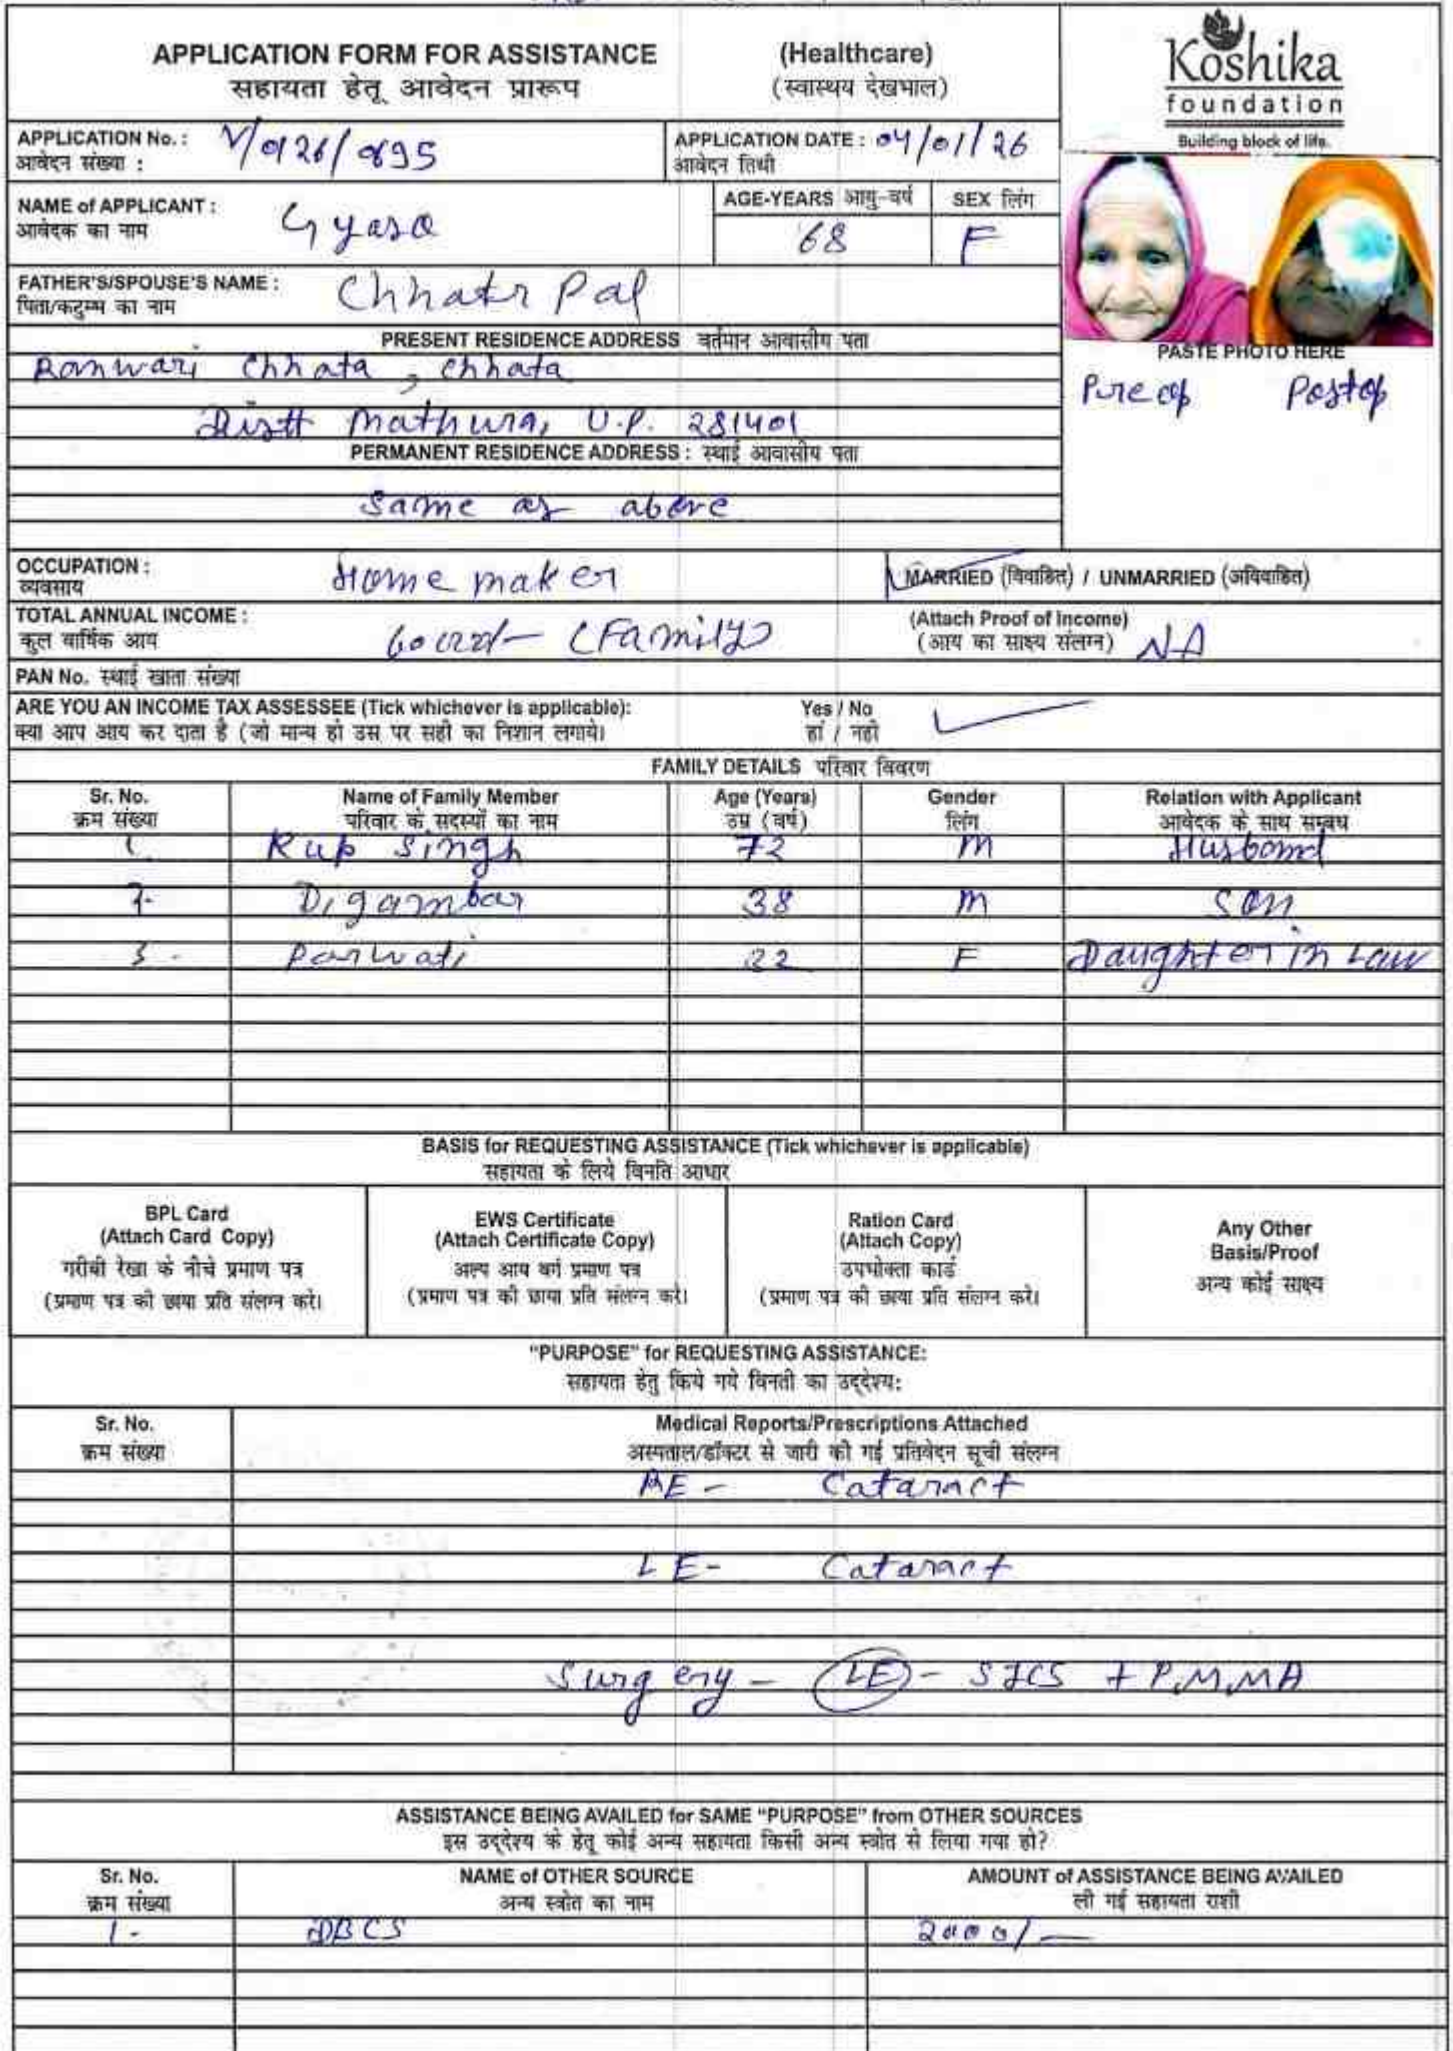 APPLICATION FORM FOR ASSISTANCE (Healthcare)
सहायता हेतू आवेदन प्रारूप (स्वास्थय देखभाल)
Koshika
foundation
Building block of life.
APPLICATION No. :
आवेदन संख्या :
APPLICATION DATE : 04/01/26
आवेदन तिथी
NAME of APPLICANT : Gyaso
आवेदक का नाम
AGE-YEARS आयु-वर्ष SEX लिंग
68 F
FATHER'S/SPOUSE'S NAME : Chhatr Pal
पिता/कटुम्भ का नाम
PRESENT RESIDENCE ADDRESS वर्तमान आवासीय पता
Ranwari Chhata , Chhata
Distt Mathura, U.P. 281401
PASTE PHOTO HERE
Pre op Postop
PERMANENT RESIDENCE ADDRESS : स्थाई आवासीय पता
Same as above
OCCUPATION : Home maker
व्यवसाय
MARRIED (विवाहित) / UNMARRIED (अविवाहित)
TOTAL ANNUAL INCOME : (Family)
कुल वार्षिक आय
(Attach Proof of Income)
(आय का साक्ष्य संलग्न) NA
PAN No. स्थाई खाता संख्या
ARE YOU AN INCOME TAX ASSESSEE (Tick whichever is applicable): Yes / No
क्या आप आय कर दाता है (जो मान्य हो उस पर सही का निशान लगाये। हां / नही
FAMILY DETAILS परिवार विवरण
Sr. No. Name of Family Member Age (Years) Gender Relation with Applicant
क्रम संख्या परिवार के सदस्यों का नाम उम्र (वर्ष) लिंग आवेदक के साथ सम्बध
1. Rup Singh 72 M Husband
2- Digambar 38 M Son
3- Parwati 22 F Daughter in Law
BASIS for REQUESTING ASSISTANCE (Tick whichever is applicable)
सहायता के लिये विनति आधार
BPL Card
(Attach Card Copy)
गरीबी रेखा के नीचे प्रमाण पत्र
(प्रमाण पत्र की छाया प्रति संलग्न करे।
EWS Certificate
(Attach Certificate Copy)
अल्प आय वर्ग प्रमाण पत्र
(प्रमाण पत्र की छाया प्रति संलग्न करे।
Ration Card
(Attach Copy)
उपभोक्ता कार्ड
(प्रमाण पत्र की छाया प्रति संलग्न करे।
Any Other
Basis/Proof
अन्य कोई साक्ष्य
"PURPOSE" for REQUESTING ASSISTANCE:
सहायता हेतु किये गये विनती का उद्देश्य:
Sr. No. Medical Reports/Prescriptions Attached
क्रम संख्या अस्पताल/डॉक्टर से जारी की गई प्रतिवेदन सूची संलग्न
RE - Cataract
LE- Cataract
Surgery - LE - SICS + P.M.MA
ASSISTANCE BEING AVAILED for SAME "PURPOSE" from OTHER SOURCES
इस उद्देश्य के हेतू कोई अन्य सहायता किसी अन्य स्त्रोत से लिया गया हो?
Sr. No. NAME of OTHER SOURCE AMOUNT of ASSISTANCE BEING AVAILED
क्रम संख्या अन्य स्त्रोत का नाम ली गई सहायता राशी
1- DBCS 2000/-